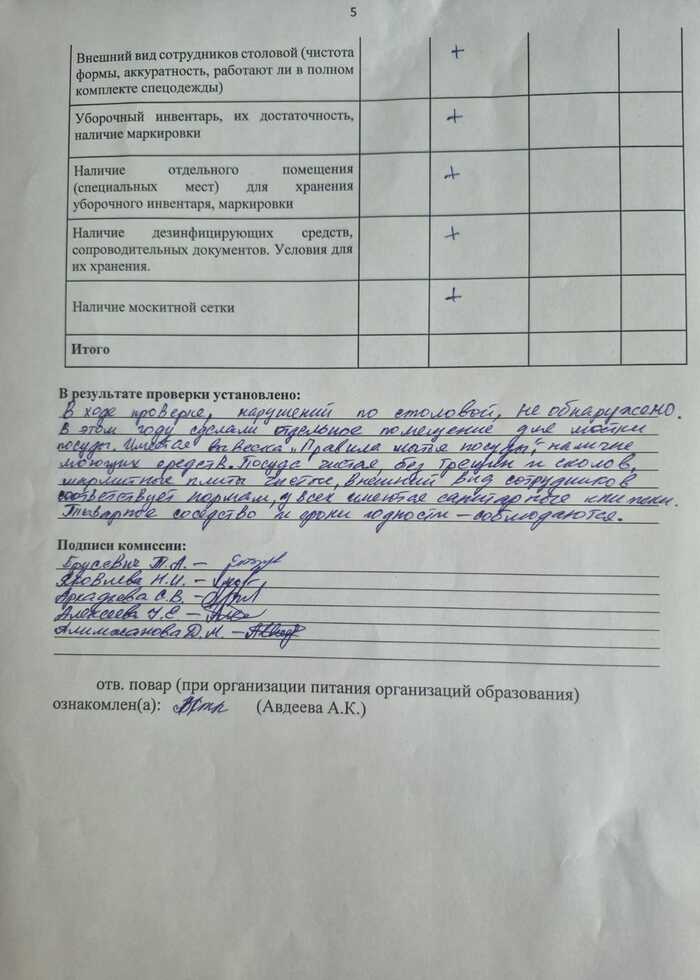 5
Внешний вид сотрудников столовой (чистота
формы, аккуратность, работают ли в полном
комплекте спецодежды)
+
Уборочный инвентарь, их достаточность,
наличие маркировки
+
Наличие отдельного помещения
(специальных мест) для хранения
уборочного инвентаря, маркировки
+
Наличие дезинфицирующих средств,
сопроводительных документов. Условия для
их хранения.
+
Наличие москитной сетки
+
Итого
В результате проверки установлено:
В ходе проверке, нарушений по столовой, не обнаружено.
В этом году сделали отдельное помещение для мойки
посуды. Имеется вывеска „Правила мытья посуды", наличие
моющих средств. Посуда чистая, без трещин и сколов,
мармитные плиты чистые, внешний вид сотрудников
соответствует нормам, у всех имеется санитарные книжки.
Товарное соседство и сроки годности – соблюдаются.
Подписи комиссии:
Брусевич Т.А. –
Яковлева Н.И. –
Аркадьева С.В. –
Алексеева Н.Е –
Алимжанова Д.М. –
отв. повар (при организации питания организаций образования)
ознакомлен(а): (Авдеева А.К.)